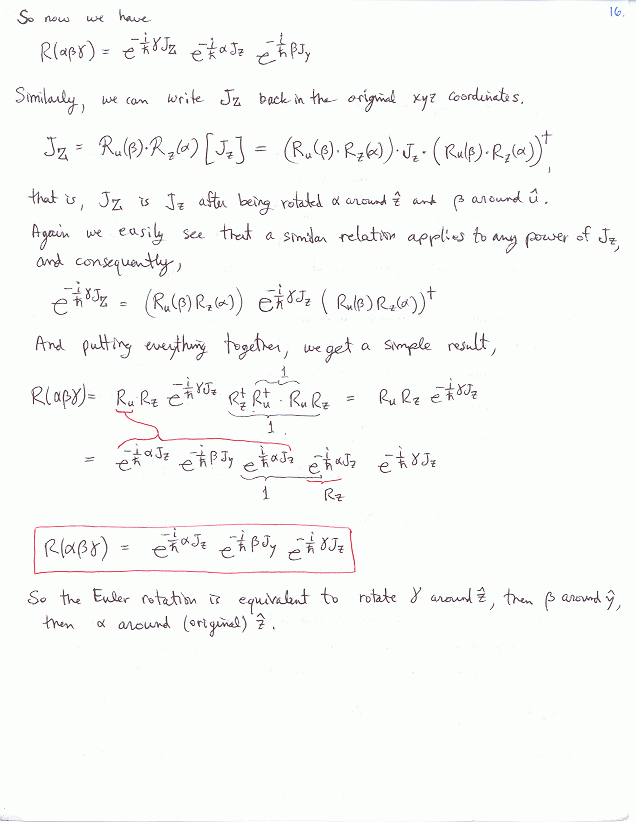 16.
So now we have
R(αβγ) = e^{-i/ħ γJ_Z} e^{-i/ħ αJ_z} e^{-i/ħ βJ_y}
Similarly, we can write J_Z back in the original xyz coordinates.
J_Z = R_u(β)·R_z(α)[J_z] = (R_u(β)·R_z(α))·J_z·(R_u(β)·R_z(α))†,
that is, J_Z is J_z after being rotated α around ẑ and β around û.
Again we easily see that a similar relation applies to any power of J_z,
and consequently,
e^{-i/ħ γJ_Z} = (R_u(β)R_z(α)) e^{-i/ħ γJ_z} (R_u(β)R_z(α))†
And putting everything together, we get a simple result,
1
R(αβγ) = R_u R_z e^{-i/ħ γJ_z} R_z† R_u† · R_u R_z = R_u R_z e^{-i/ħ γJ_z}
1.
= e^{-i/ħ αJ_z} e^{-i/ħ βJ_y} e^{i/ħ αJ_z} e^{-i/ħ αJ_z} e^{-i/ħ γJ_z}
1 R_z
R(αβγ) = e^{-i/ħ αJ_z} e^{-i/ħ βJ_y} e^{-i/ħ γJ_z}
So the Euler rotation is equivalent to rotate γ around ẑ, then β around ŷ,
then α around (original) ẑ.